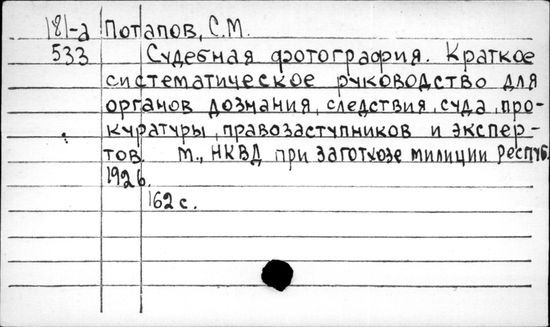 181-а Потапов, С.М.
533 Судебная фотография. Краткое
систематическое руководство для
органов дознания, следствия, суда, про-
куратуры, правозаступников и экспер-
тов. М., НКВД при Заготхозе милиции Респуб.
1926.
162 с.